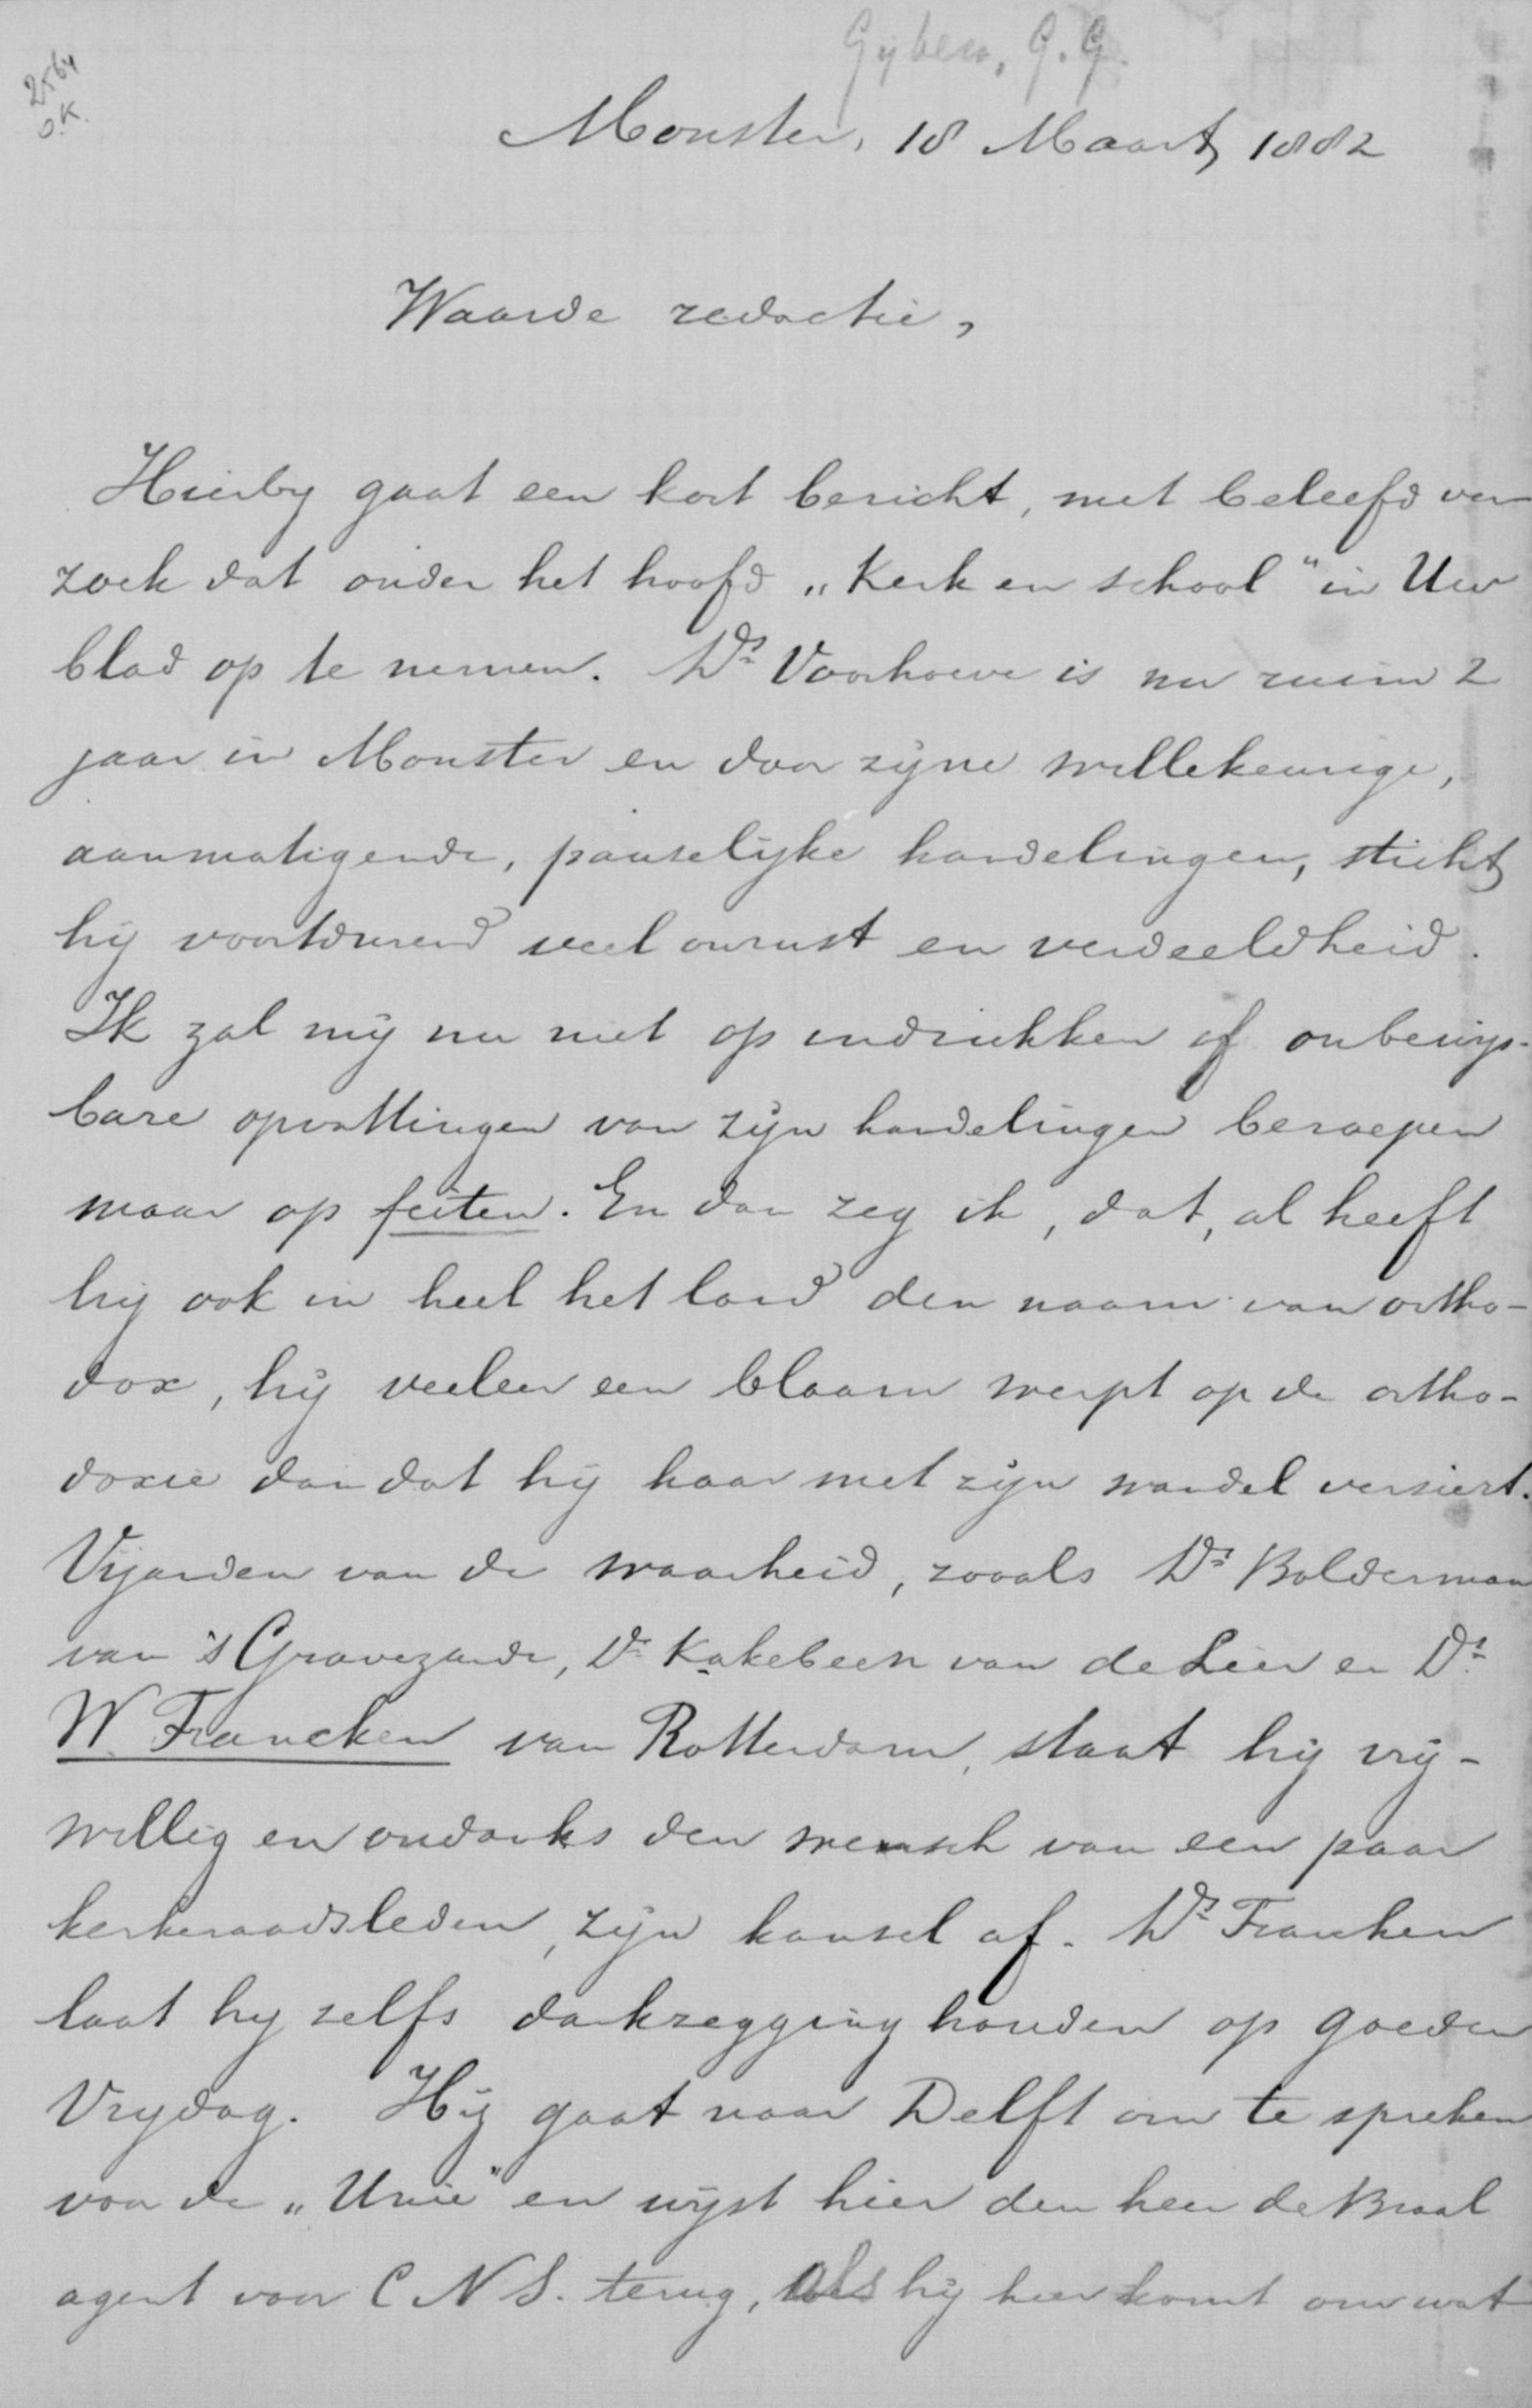 Gijben, G.G.
2564
O.K.
Monster, 18 Maart 1882
Waarde redactie,
Hierby gaat een kort bericht, met beleefd ver
zoek dat onder het hoofd „Kerk en school" in Uw
blad op te nemen. Ds Voorhoeve is nu ruim 2
jaar in Monster en door zijne willekeurige,
aanmatigende, pauselijke handelingen, sticht
hij voortdurend veel onrust en verdeeldheid.
Ik zal mij nu niet op indrukken of onbewijs-
bare opvattingen van zijn handelingen beroepen
maar op feiten. En dan zeg ik, dat, al heeft
hij ook in heel het land den naam van ortho-
dox, hij veeleer een blaam werpt op de ortho-
doxie dan dat hij haar met zijn wandel versiert.
Vijanden van de waarheid, zooals Ds Bolderman
van 's Gravezande, Ds Kakebeen van de Lier en Ds
W. Francken van Rotterdam, staat hij vrij-
willig en ondanks den wensch van een paar
kerkeraadsleden, zijn kansel af. Ds Francken
laat hy zelfs dankzegging houden op goeden
Vrydag. Hij gaat naar Delft om te spreken
voor de „Unie" en wijst hier den heer de Braal
agent voor C N S. terug, als hij hier komt om wat